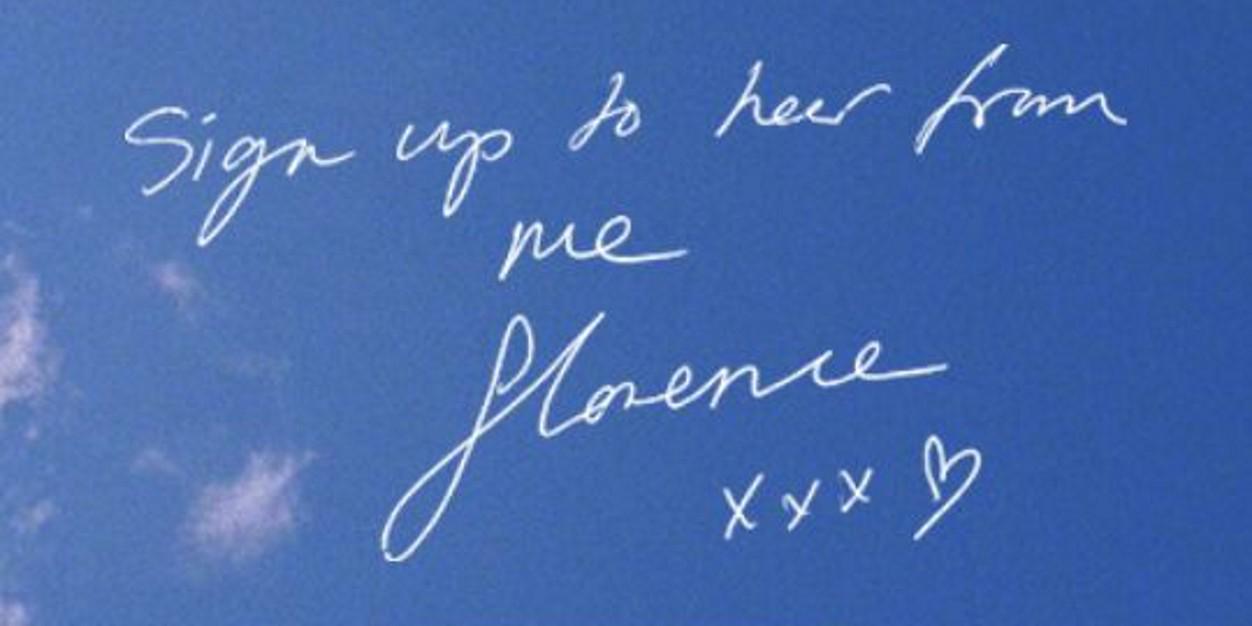 Sign up to hear from
me
Florence
xxx ♡